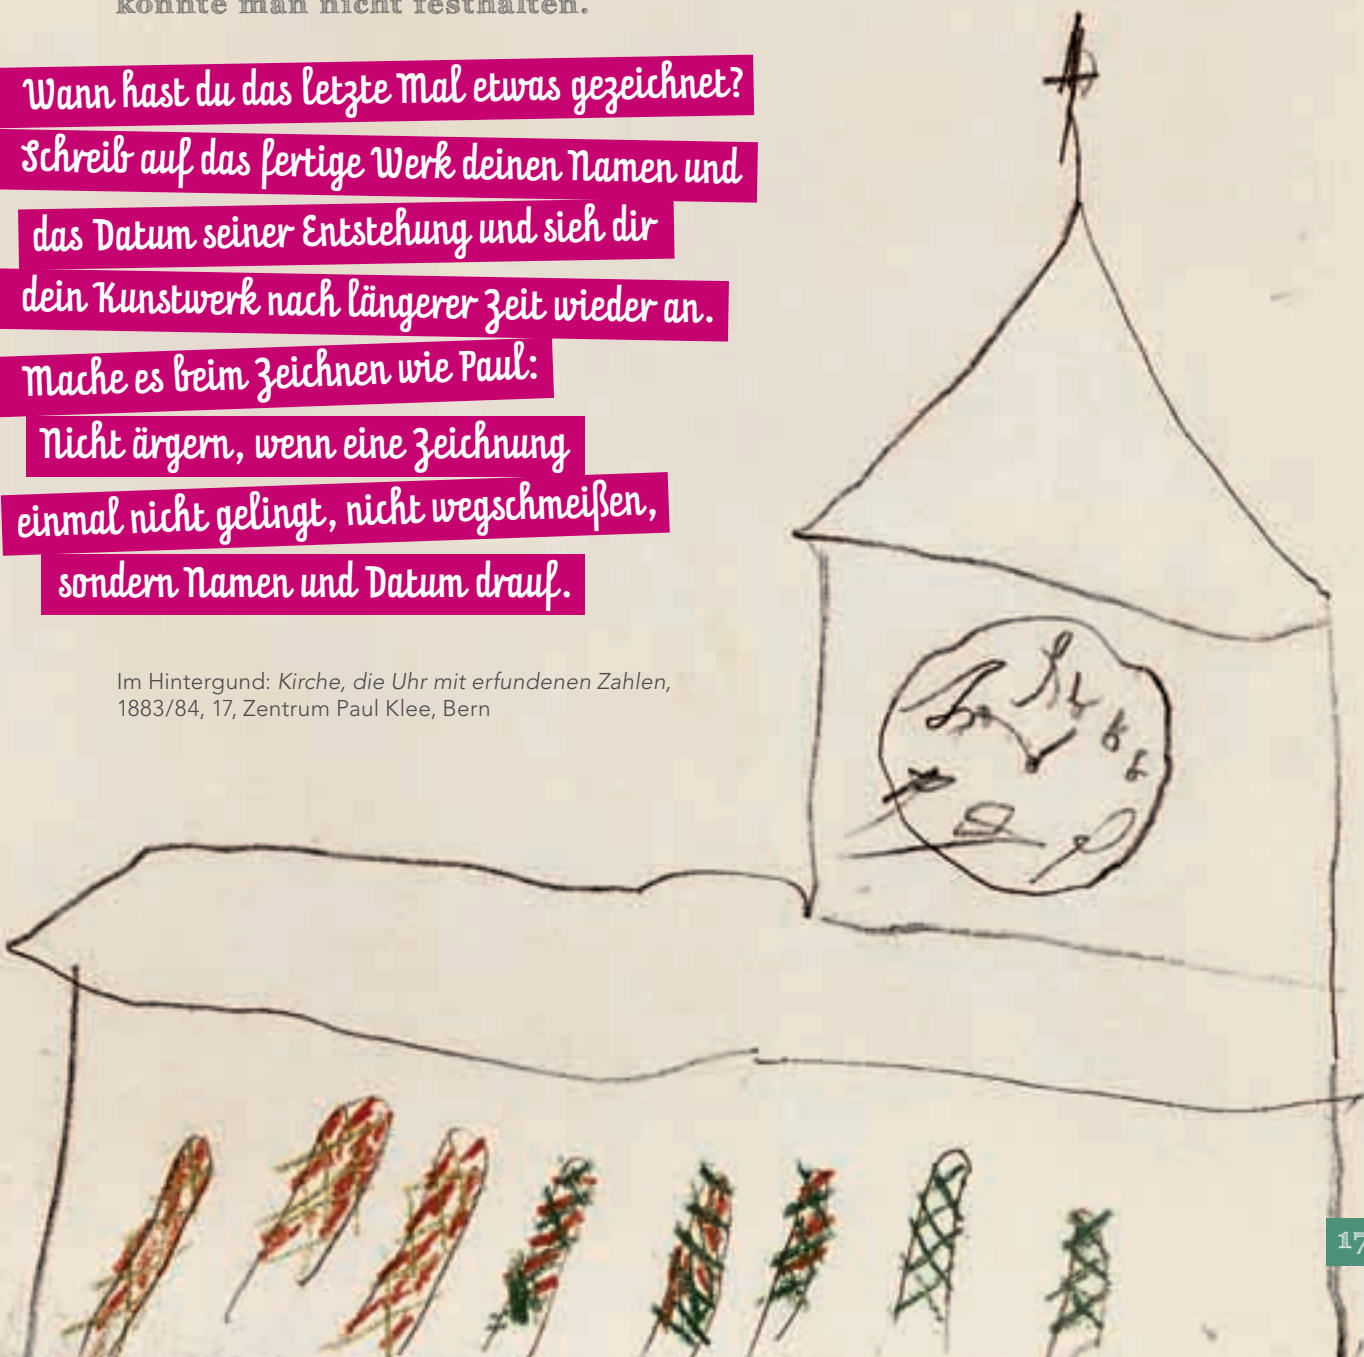 konnte man nicht festhalten.
Wann hast du das letzte Mal etwas gezeichnet?
Schreib auf das fertige Werk deinen Namen und
das Datum seiner Entstehung und sieh dir
dein Kunstwerk nach längerer Zeit wieder an.
Mache es beim Zeichnen wie Paul:
Nicht ärgern, wenn eine Zeichnung
einmal nicht gelingt, nicht wegschmeißen,
sondern Namen und Datum drauf.
Im Hintergund: Kirche, die Uhr mit erfundenen Zahlen,
1883/84, 17, Zentrum Paul Klee, Bern
17